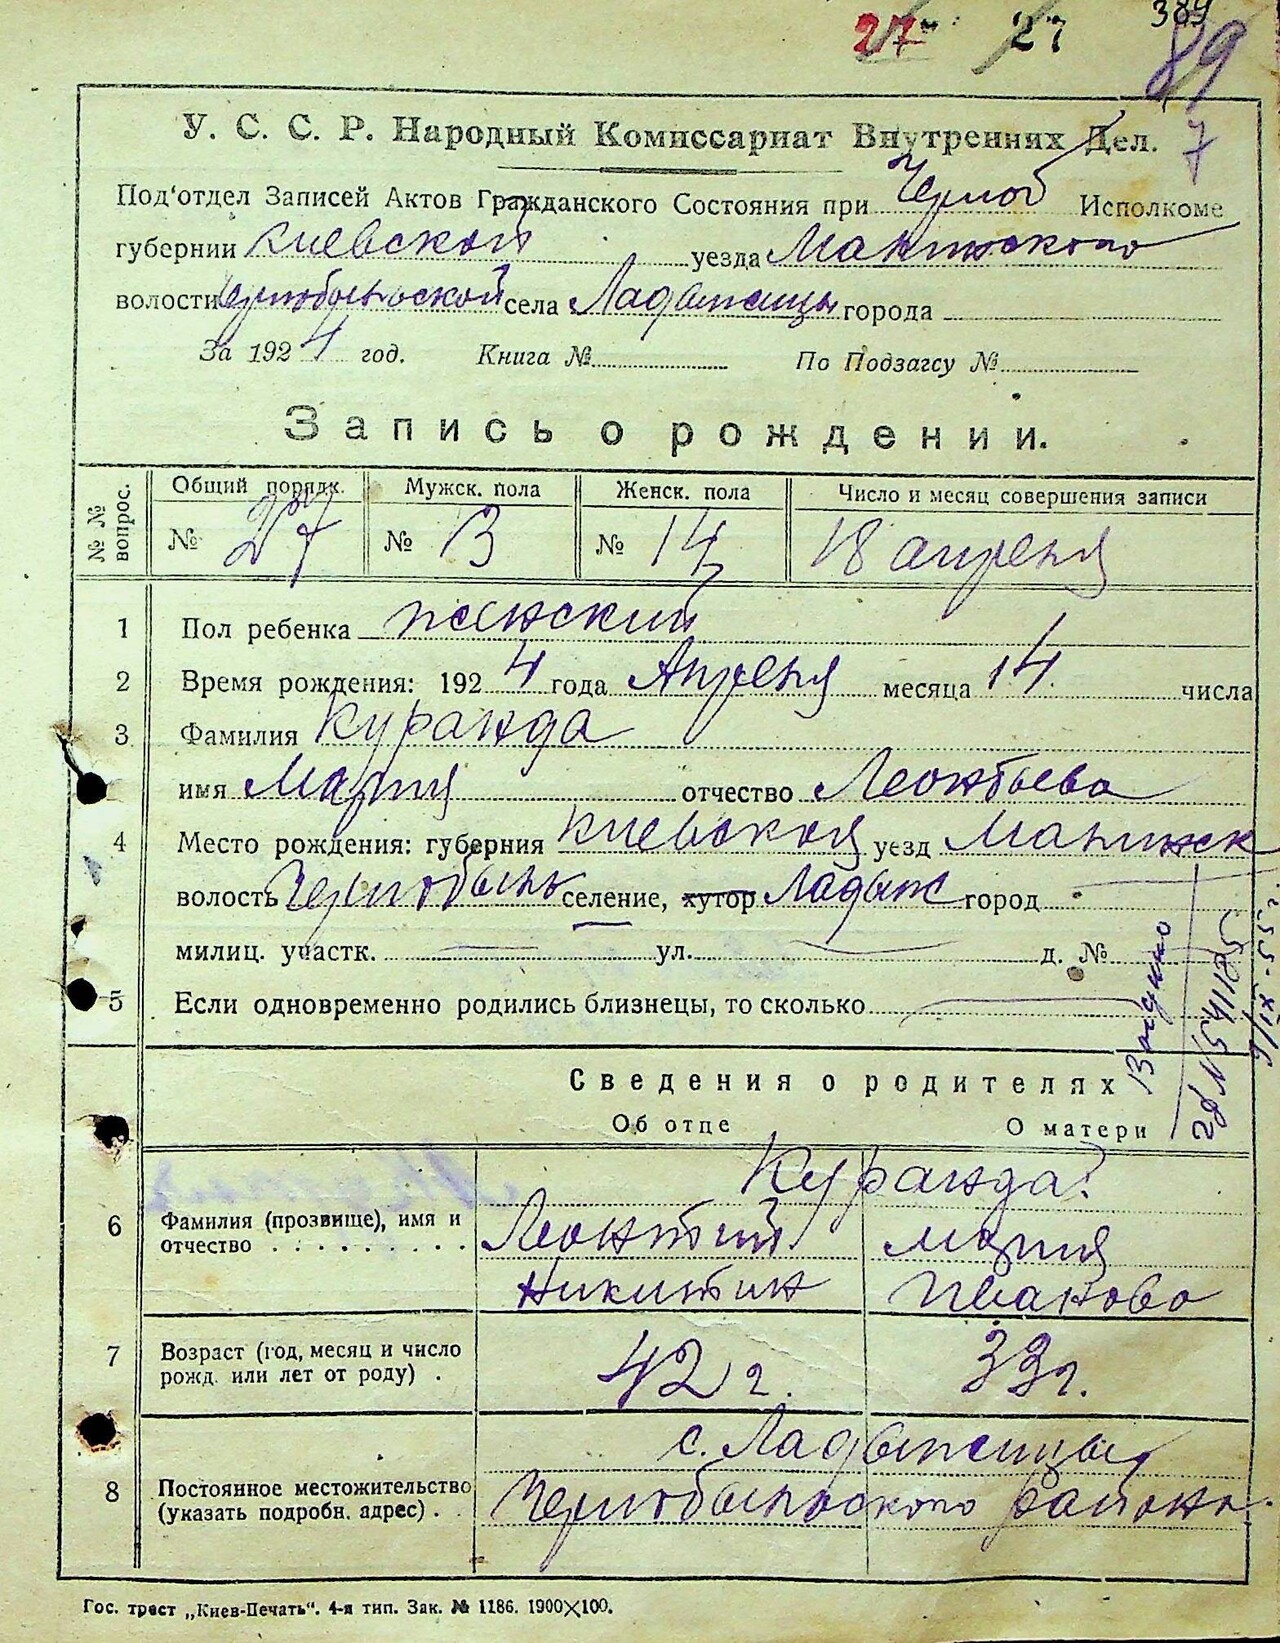 389
27 27 89
У. С. С. Р. Народный Комиссариат Внутренних Дел. 7
Под'отдел Записей Актов Гражданского Состояния при Черноб Исполкоме
губернии Киевской уезда
волости Чернобыльской села Ладыжицы города
За 1924 год. Книга № По Подзагсу №
Запись о рождении.
№ № вопрос. Общий порядк. Мужск. пола Женск. пола Число и месяц совершения записи
№ 27 № 13 № 14 18 апреля
1 Пол ребенка женский
2 Время рождения: 1924 года Апреля месяца 14 числа
3 Фамилия Куранда
имя Мария отчество Леонтьева
4 Место рождения: губерния Киевская уезд
волость Чернобыль селение, хутор Ладыж город
милиц. участк. ул. д. №
5 Если одновременно родились близнецы, то сколько
Сведения о родителях
Об отце О матери
Куранда
6 Фамилия (прозвище), имя и отчество . . . . . . . . . Леонтий Мария
Никитин Иванова
7 Возраст (год, месяц и число рожд. или лет от роду) . 42 г. 33 г.
с. Ладыжицы
8 Постоянное местожительство (указать подробн. адрес) . . Чернобыльского района.
Гос. трест „Киев-Печать“. 4-я тип. Зак. № 1186. 1900×100.